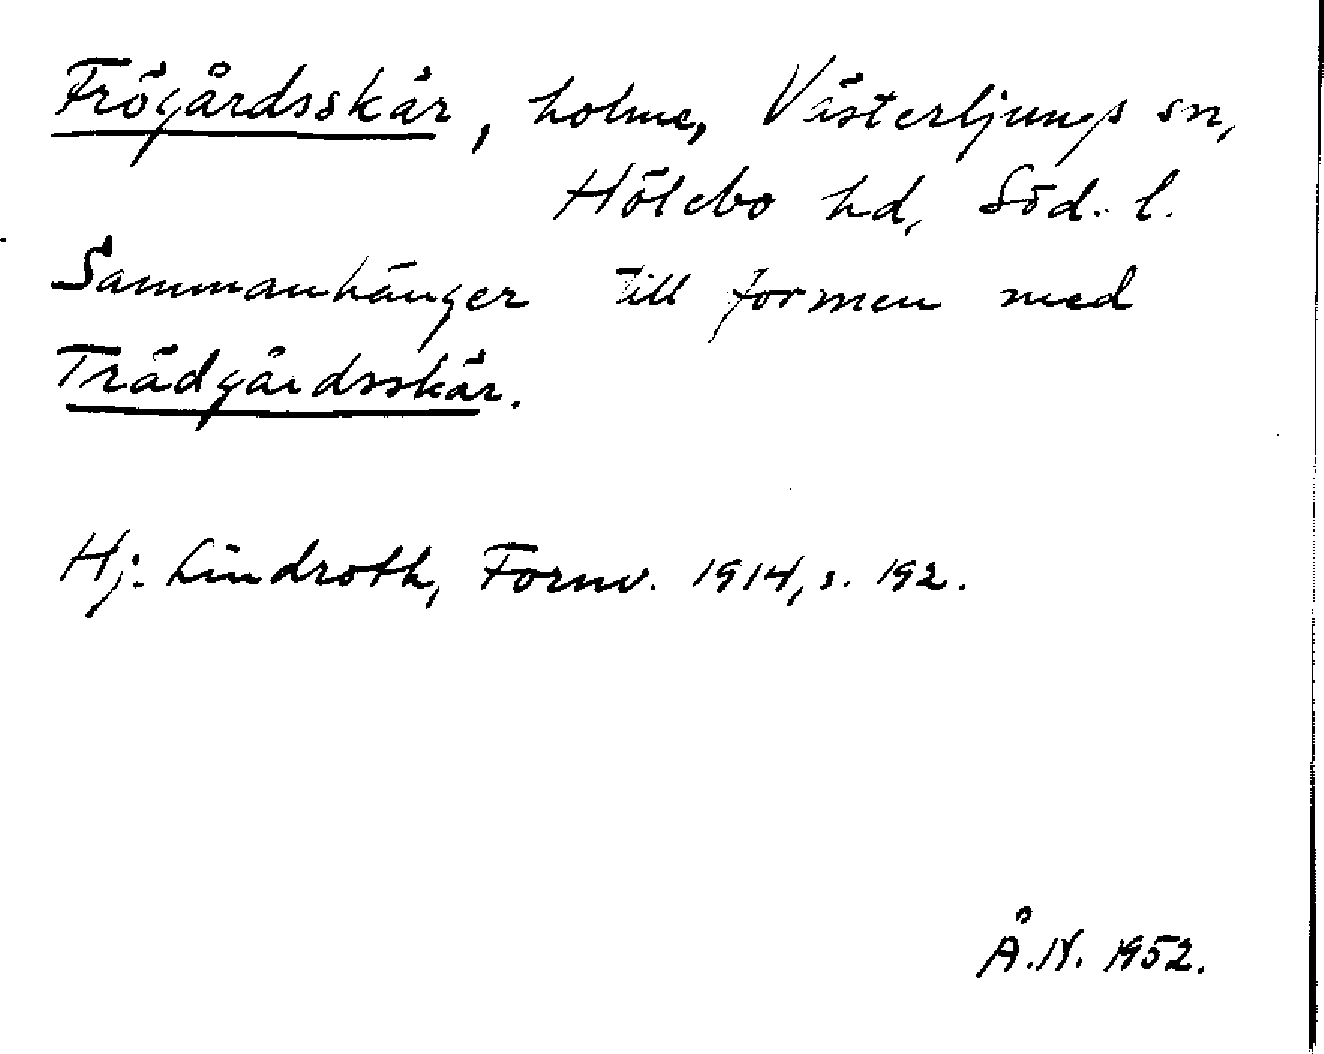 Frögårdsskär, holme, Västerljungs sn,
Hölebo hd, Söd. l.
Sammanhänger till formen med
Trädgårdsskär.
Hj. Lindroth, Fornv. 1914, s. 192.
Å.N. 1952.